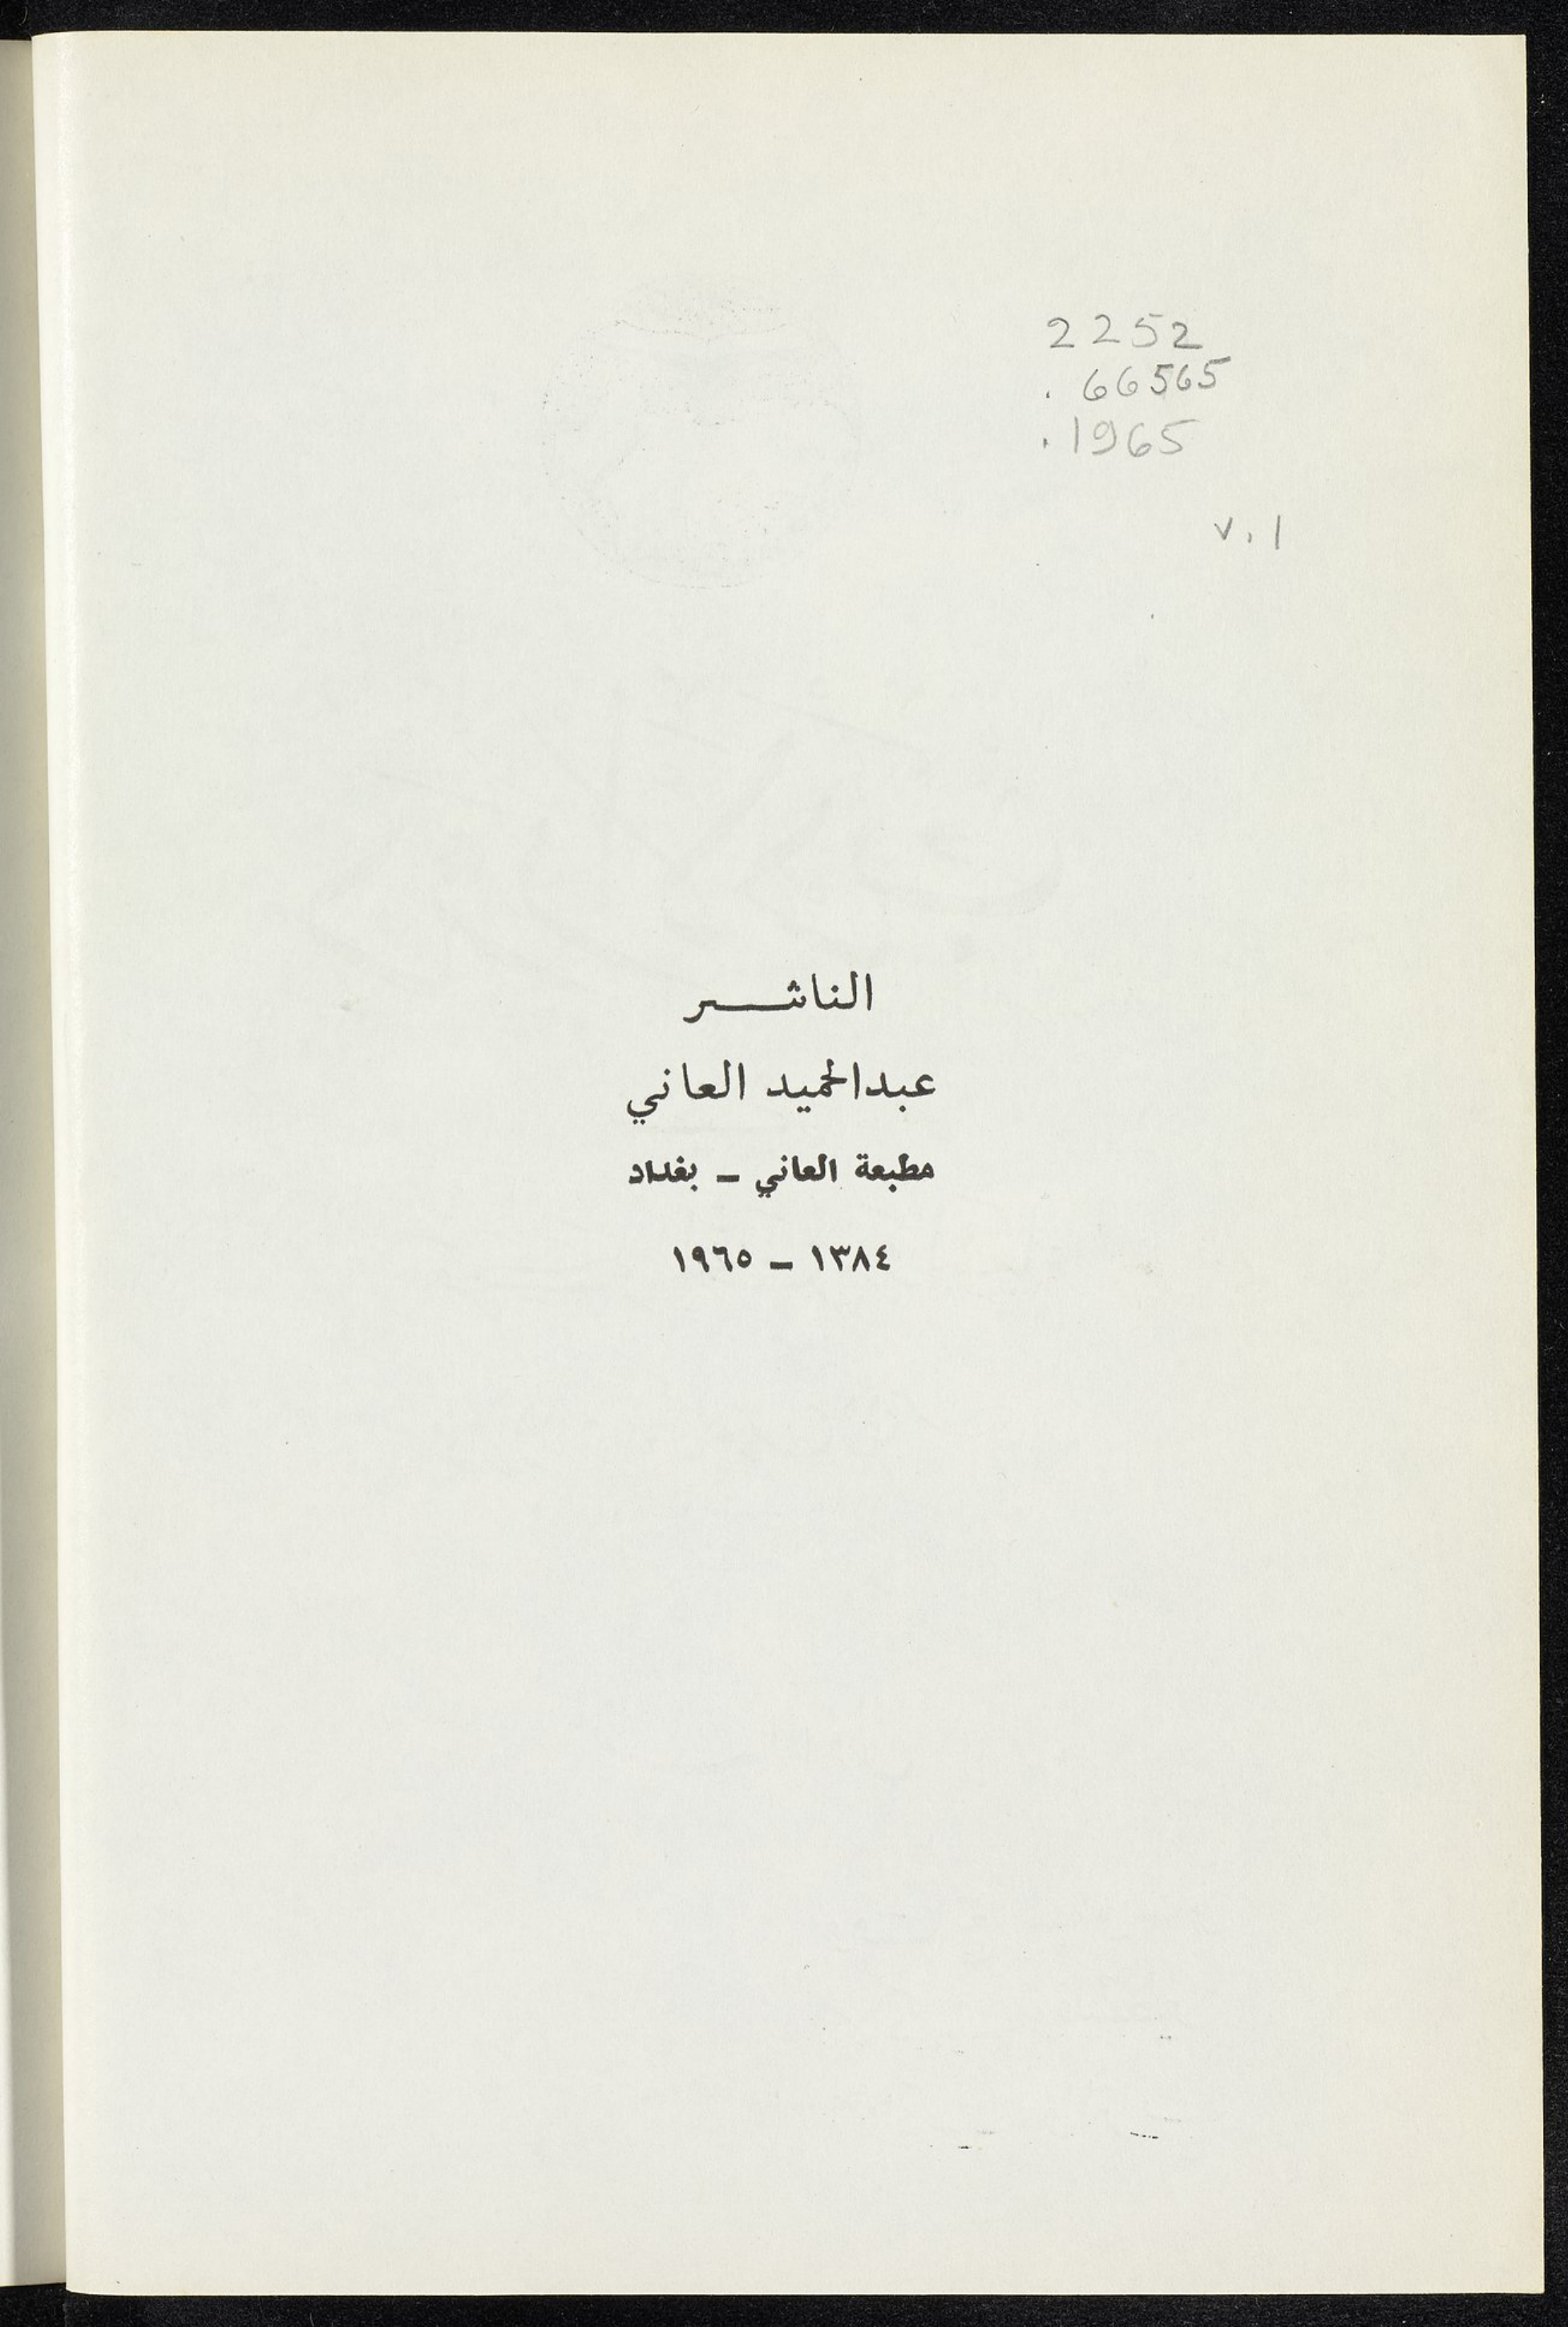 2252
. 66565
.1965
v.1
الناشـــــر
عبدالحميد العاني
مطبعة العاني ــ بغداد
١٣٨٤ ــ ١٩٦٥